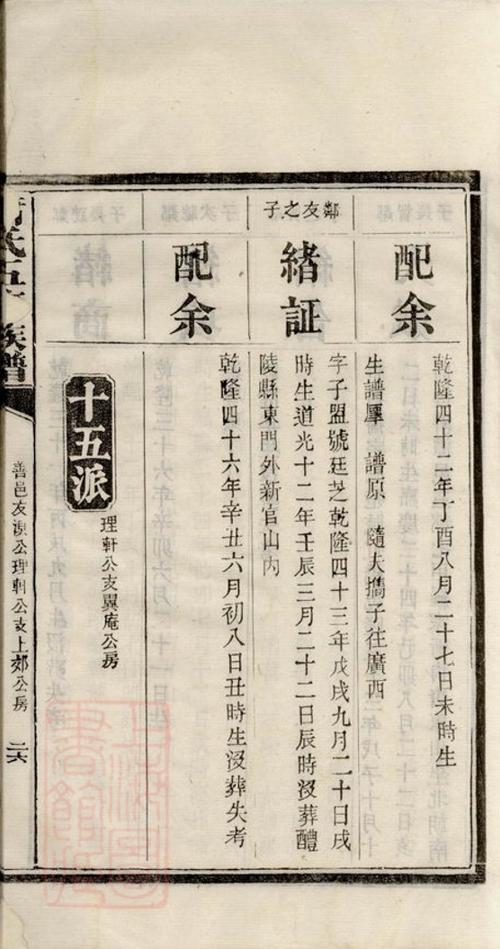 配余
乾隆四十二年丁酉八月二十七日未時生
生譜羣 譜原 隨夫攜子往廣西
鄰友之子
緒証
字子盟號廷芝乾隆四十三年戊戌九月二十日戌
時生道光十二年壬辰三月二十二日辰時沒葬醴
陵縣東門外新官山內
配余
乾隆四十六年辛丑六月初八日丑時生沒葬失考
十五派
理軒公支翼庵公房
氏五
族譜
善邑友諒公理軒公支上郊公房
二六